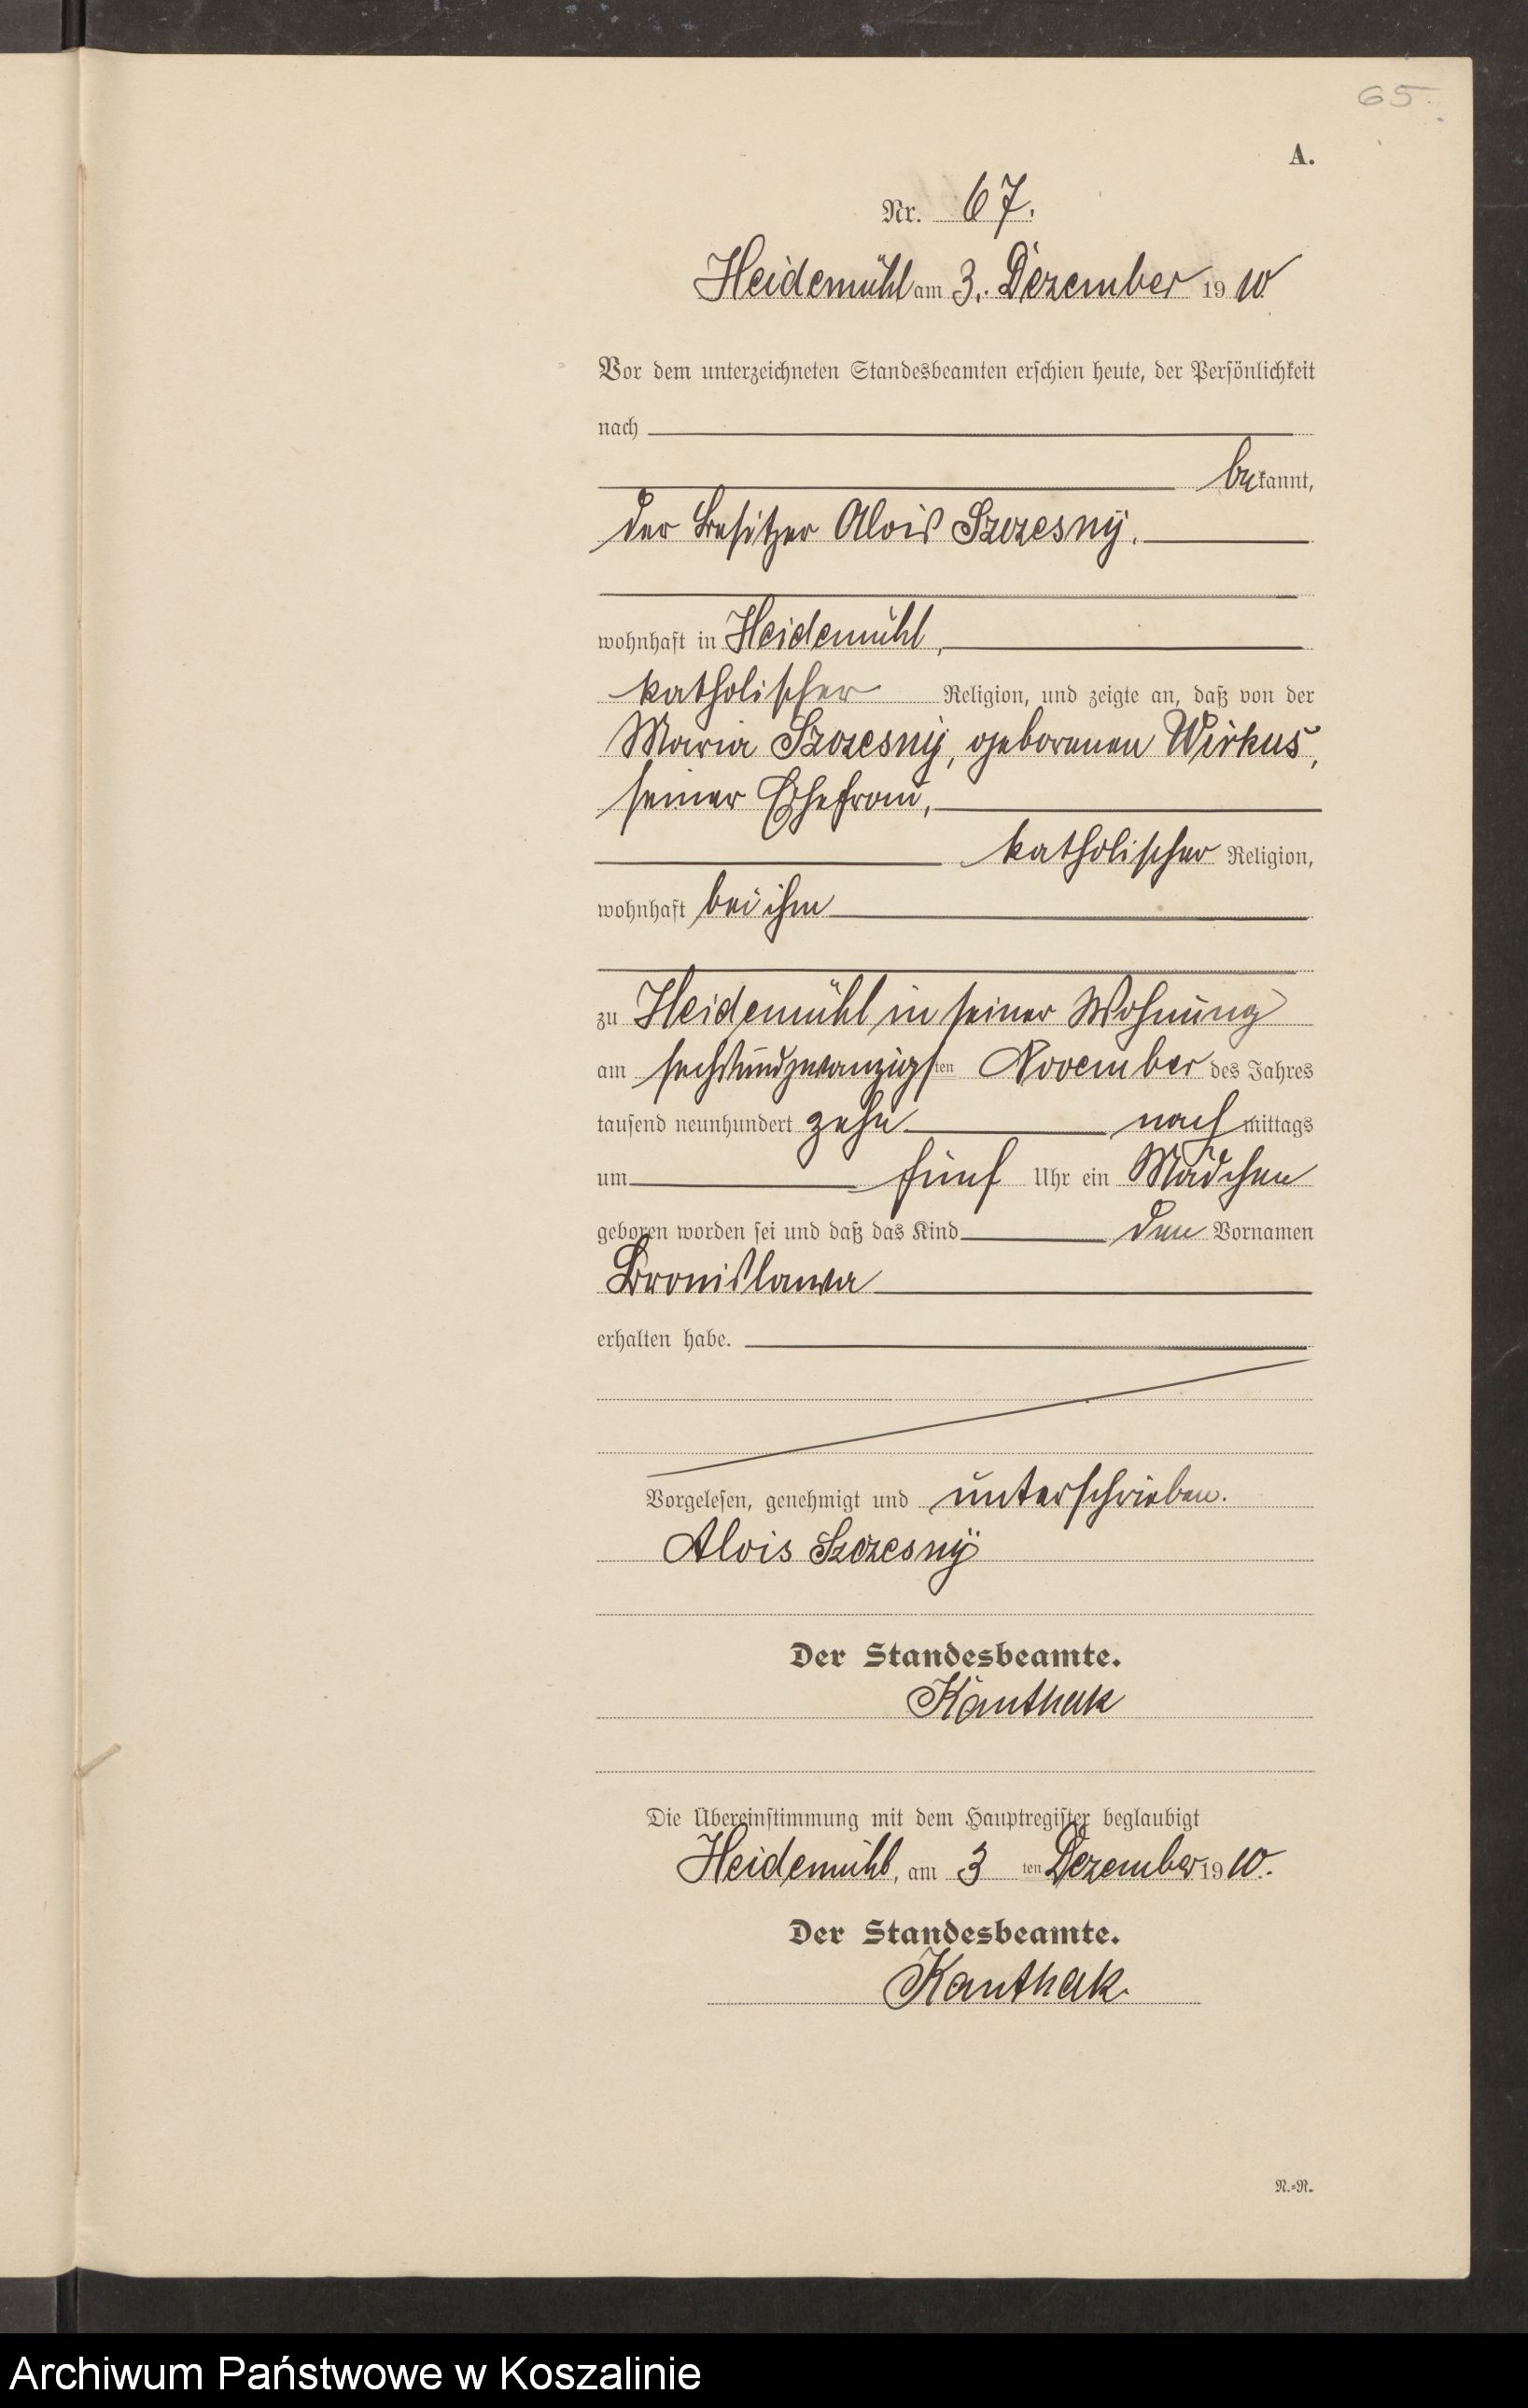 65.
A.
Nr. 67.
Heidemühl am 3. Dezember 1910
Vor dem unterzeichneten Standesbeamten erschien heute, der Persönlichkeit
nach
bekannt,
der Besitzer Alois Szczesny,
wohnhaft in Heidemühl,
katholischer Religion, und zeigte an, daß von der
Maria Szczesny, geborenen Wirkus,
seiner Ehefrau,
katholischer Religion,
wohnhaft bei ihm
zu Heidemühl in seiner Wohnung
am sechsundzwanzigsten November des Jahres
tausend neunhundert zehn nachmittags
um fünf Uhr ein Mädchen
geboren worden sei und daß das Kind den Vornamen
Bronislawa
erhalten habe.
Vorgelesen, genehmigt und unterschrieben.
Alois Szczesny
Der Standesbeamte.
Kanthak
Die Übereinstimmung mit dem Hauptregister beglaubigt
Heidemühl, am 3 ten Dezember 1910.
Der Standesbeamte.
Kanthak.
N.=R.
Archiwum Państwowe w Koszalinie